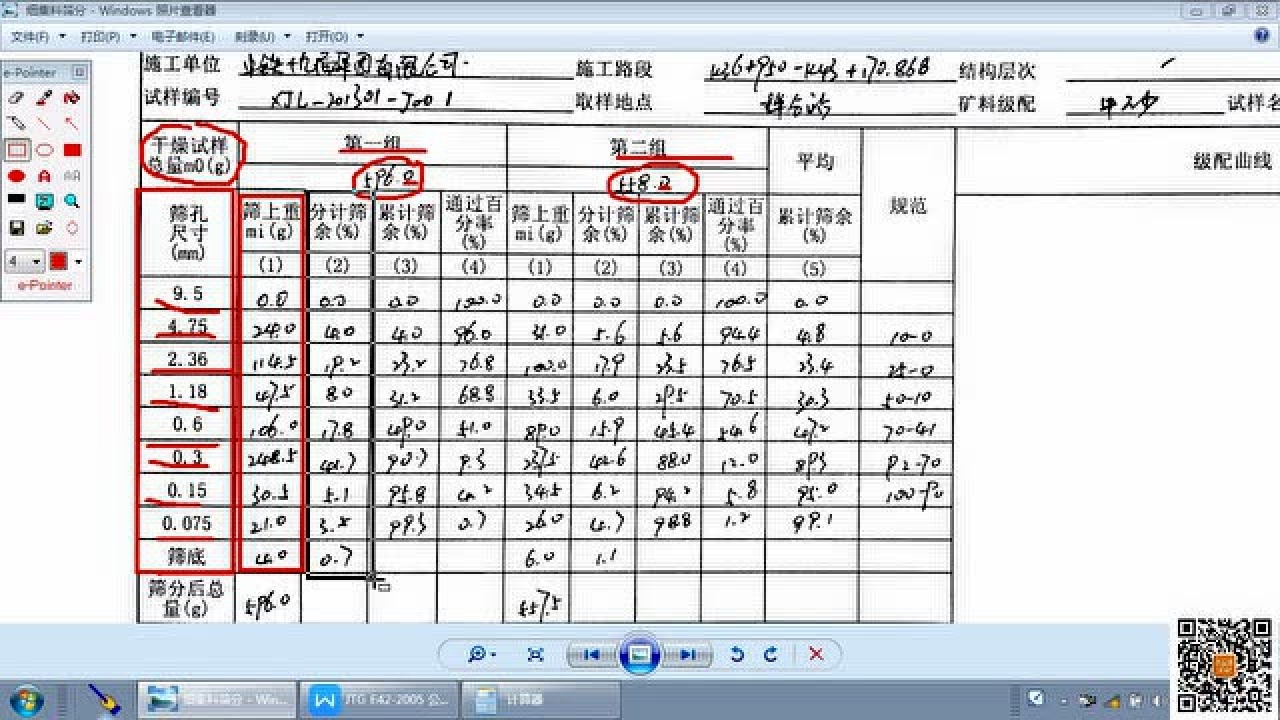 细集料筛分 - Windows 照片查看器
文件(F) 打印(P) 电子邮件(E) 刻录(U) 打开(O)
e-Pointer
4
e-Pointer
施工单位 施工路段 K36+950-K43+170.868 结构层次
试样编号 取样地点 拌合站 矿料级配 中砂 试样名
干燥试样总量m0(g) 第一组 第二组 平均 规范 级配曲线
596.0 558.0
筛孔尺寸(mm) 筛上重mi(g) 分计筛余(%) 累计筛余(%) 通过百分率(%) 筛上重mi(g) 分计筛余(%) 累计筛余(%) 通过百分率(%) 累计筛余(%)
(1) (2) (3) (4) (1) (2) (3) (4) (5)
9.5 0.0 0.0 0.0 100.0 0.0 0.0 0.0 100.0 0.0
4.75 24.0 4.0 4.0 96.0 31.0 5.6 5.6 94.4 4.8 10-0
2.36 114.5 19.2 23.2 76.8 100.0 17.9 23.5 76.5 23.4 25-0
1.18 47.5 8.0 31.2 68.8 33.5 6.0 29.5 70.5 30.3 50-10
0.6 106.0 17.8 49.0 51.0 89.0 15.9 45.4 54.6 47.2 70-41
0.3 248.5 41.7 90.7 9.3 237.5 42.6 88.0 12.0 89.3 92-70
0.15 30.5 5.1 95.8 4.2 34.5 6.2 94.2 5.8 95.0 100-90
0.075 21.0 3.5 99.3 0.7 26.0 4.7 98.8 1.2 99.1
筛底 4.0 0.7 6.0 1.1
筛分后总量(g) 596.0 557.5
细集料筛分 - Win... JTG E42-2005 公... 计算器